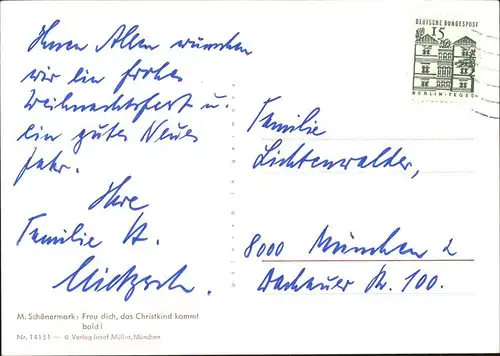 Ihnen Allen wünschen
wir ein frohes
Weihnachtsfest u.
ein gutes Neues
Jahr.
Ihre
Familie H.
M. Schönermark: Freu dich, das Christkind kommt
bald!
Nr. 14151 — © Verlag Josef Müller, München
DEUTSCHE BUNDESPOST
15
BERLIN-TEGEL
Familie
Lichtenwalder,
8000 München 2
Dachauer Str. 100.